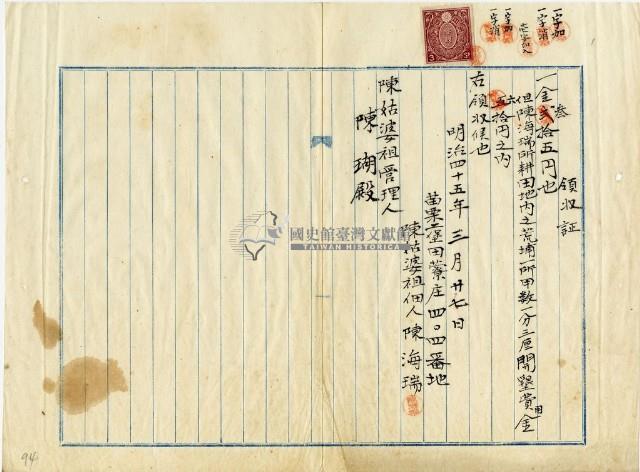 領収証
一金弐拾五円也
叁
但陳海瑞所耕田地内之荒埔一所甲数一分三厘開墾賞金
用
五拾円之内
六
右領収候也
明治四十五年三月廿七日
苗栗一堡田藔庄四〇四番地
陳姑婆祖佃人陳海瑞
陳姑婆祖管理人
陳瑚殿
一字加
一字消
壱字加入
一字加
一字消
國史館臺灣文獻館
TAIWAN HISTORICA
94